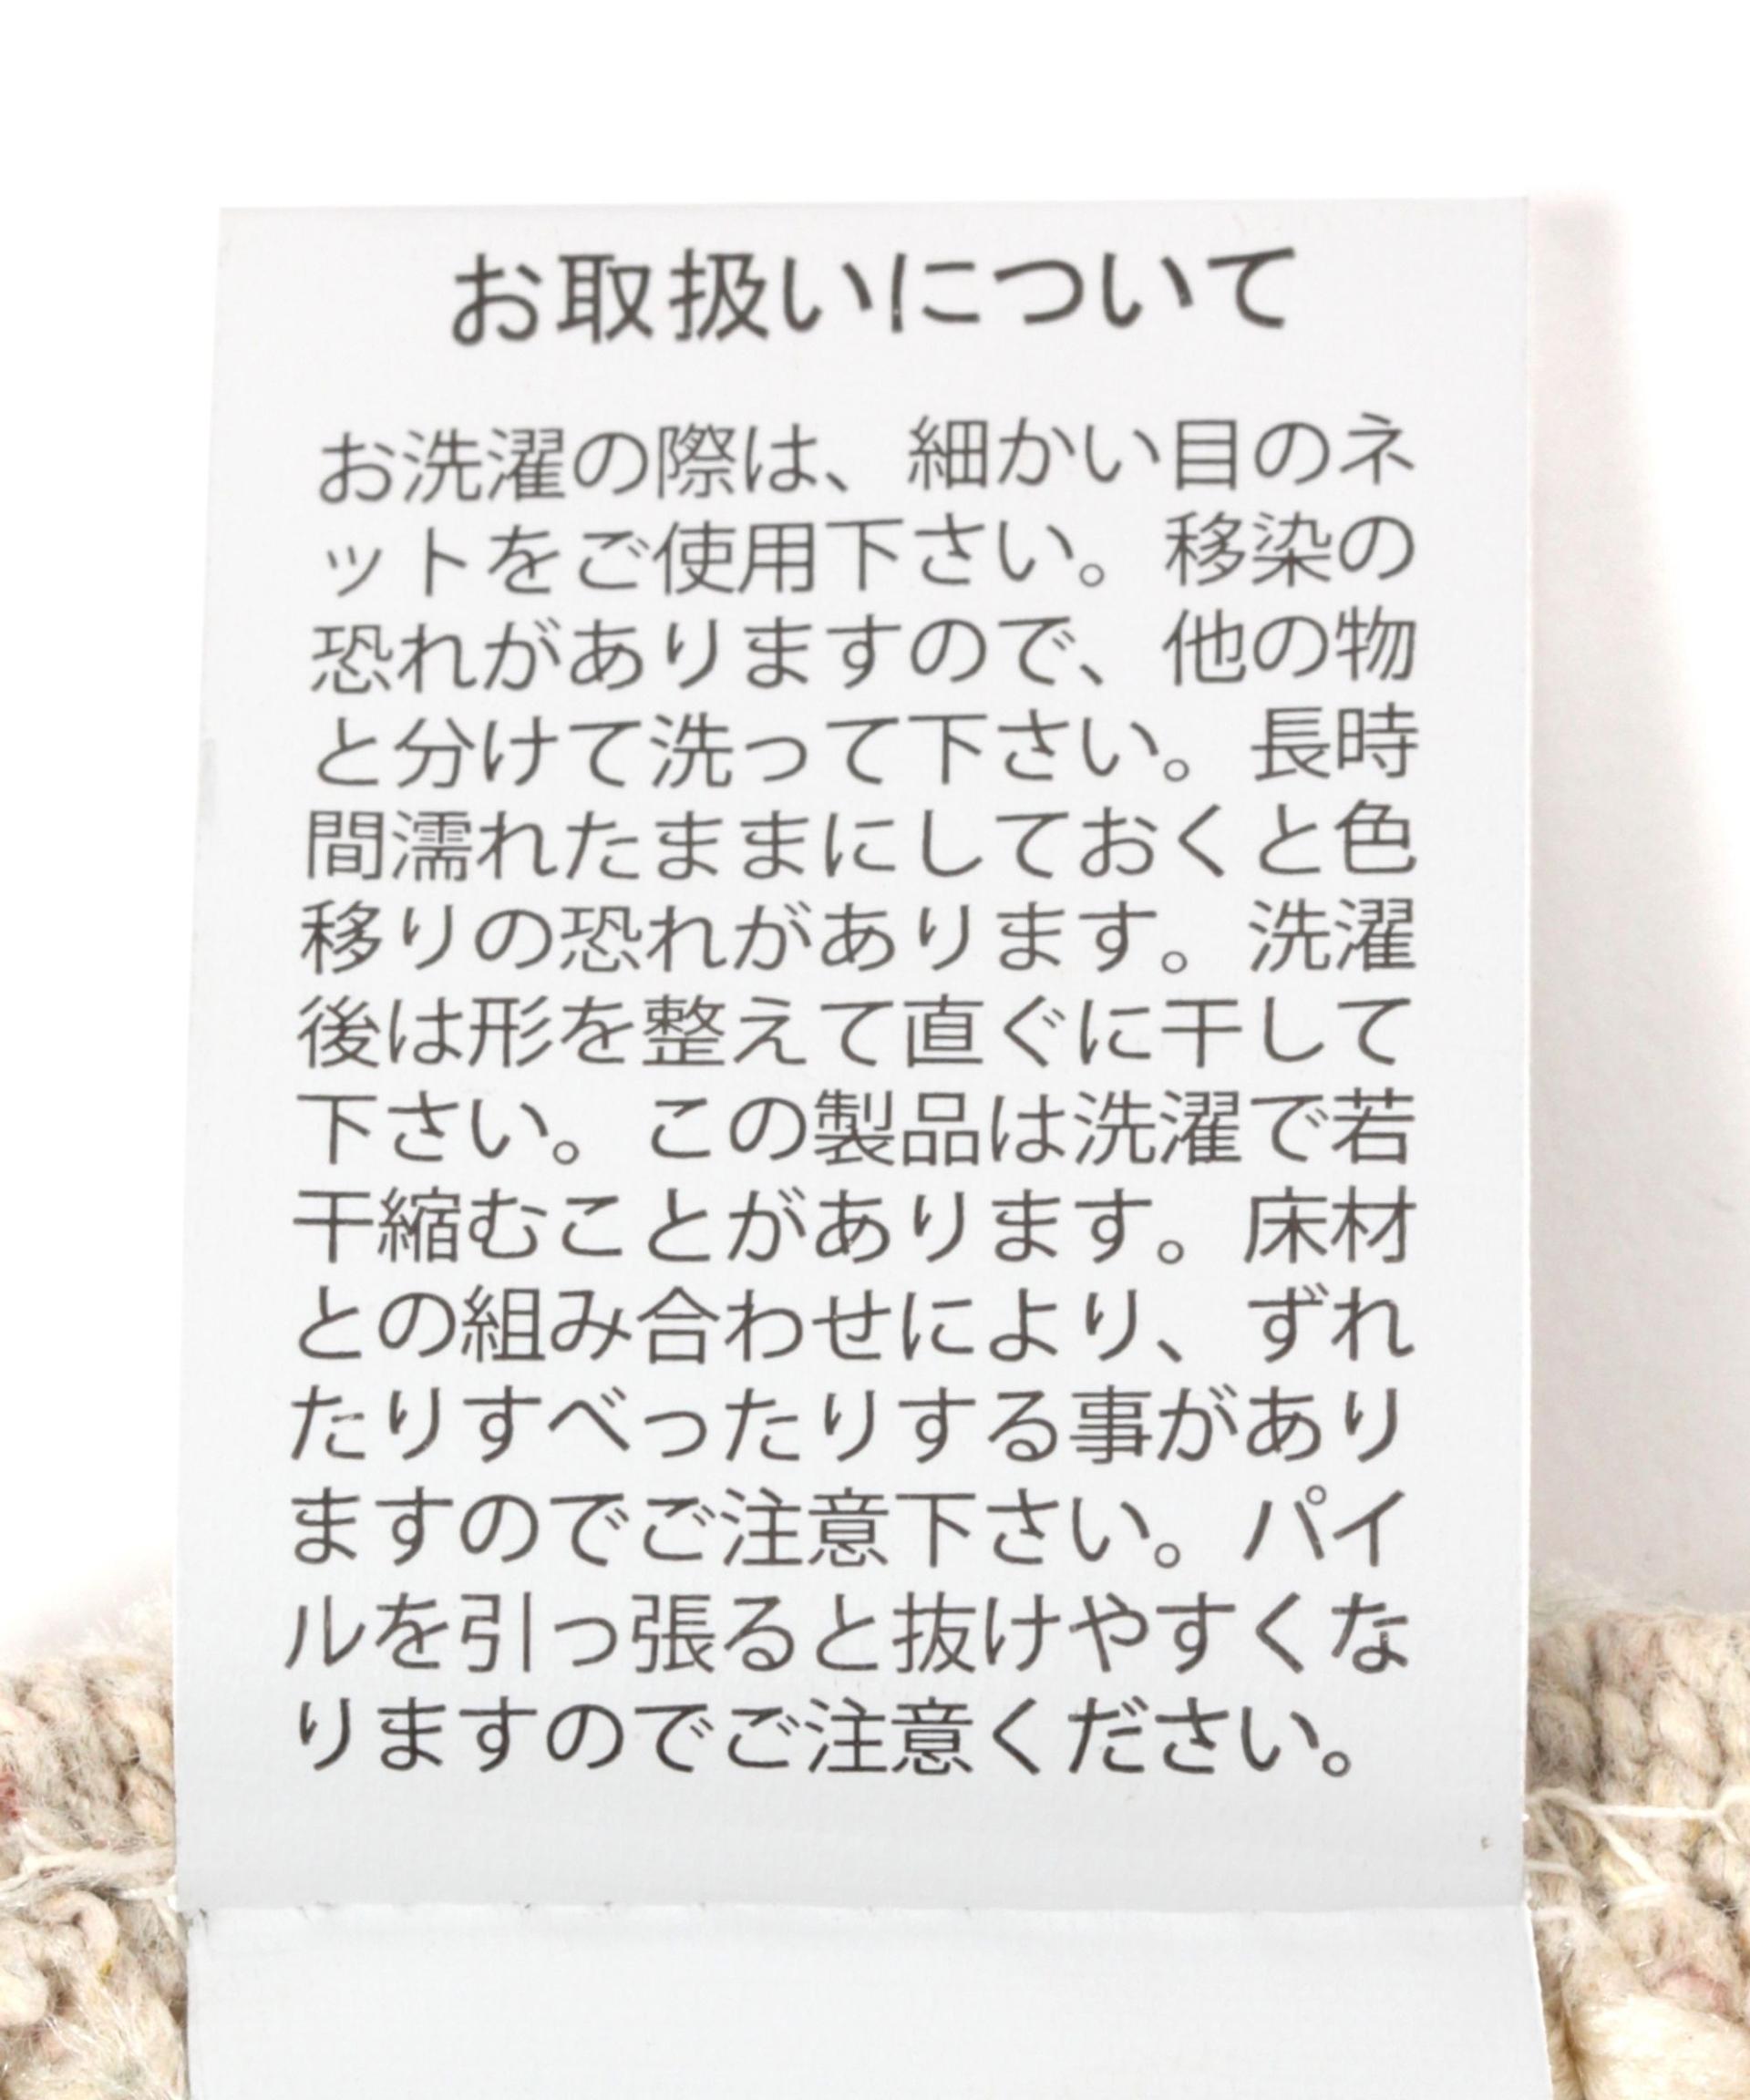 お取扱いについて
お洗濯の際は、細かい目のネ
ットをご使用下さい。移染の
恐れがありますので、他の物
と分けて洗って下さい。長時
間濡れたままにしておくと色
移りの恐れがあります。洗濯
後は形を整えて直ぐに干して
下さい。この製品は洗濯で若
干縮むことがあります。床材
との組み合わせにより、ずれ
たりすべったりする事があり
ますのでご注意下さい。パイ
ルを引っ張ると抜けやすくな
りますのでご注意ください。